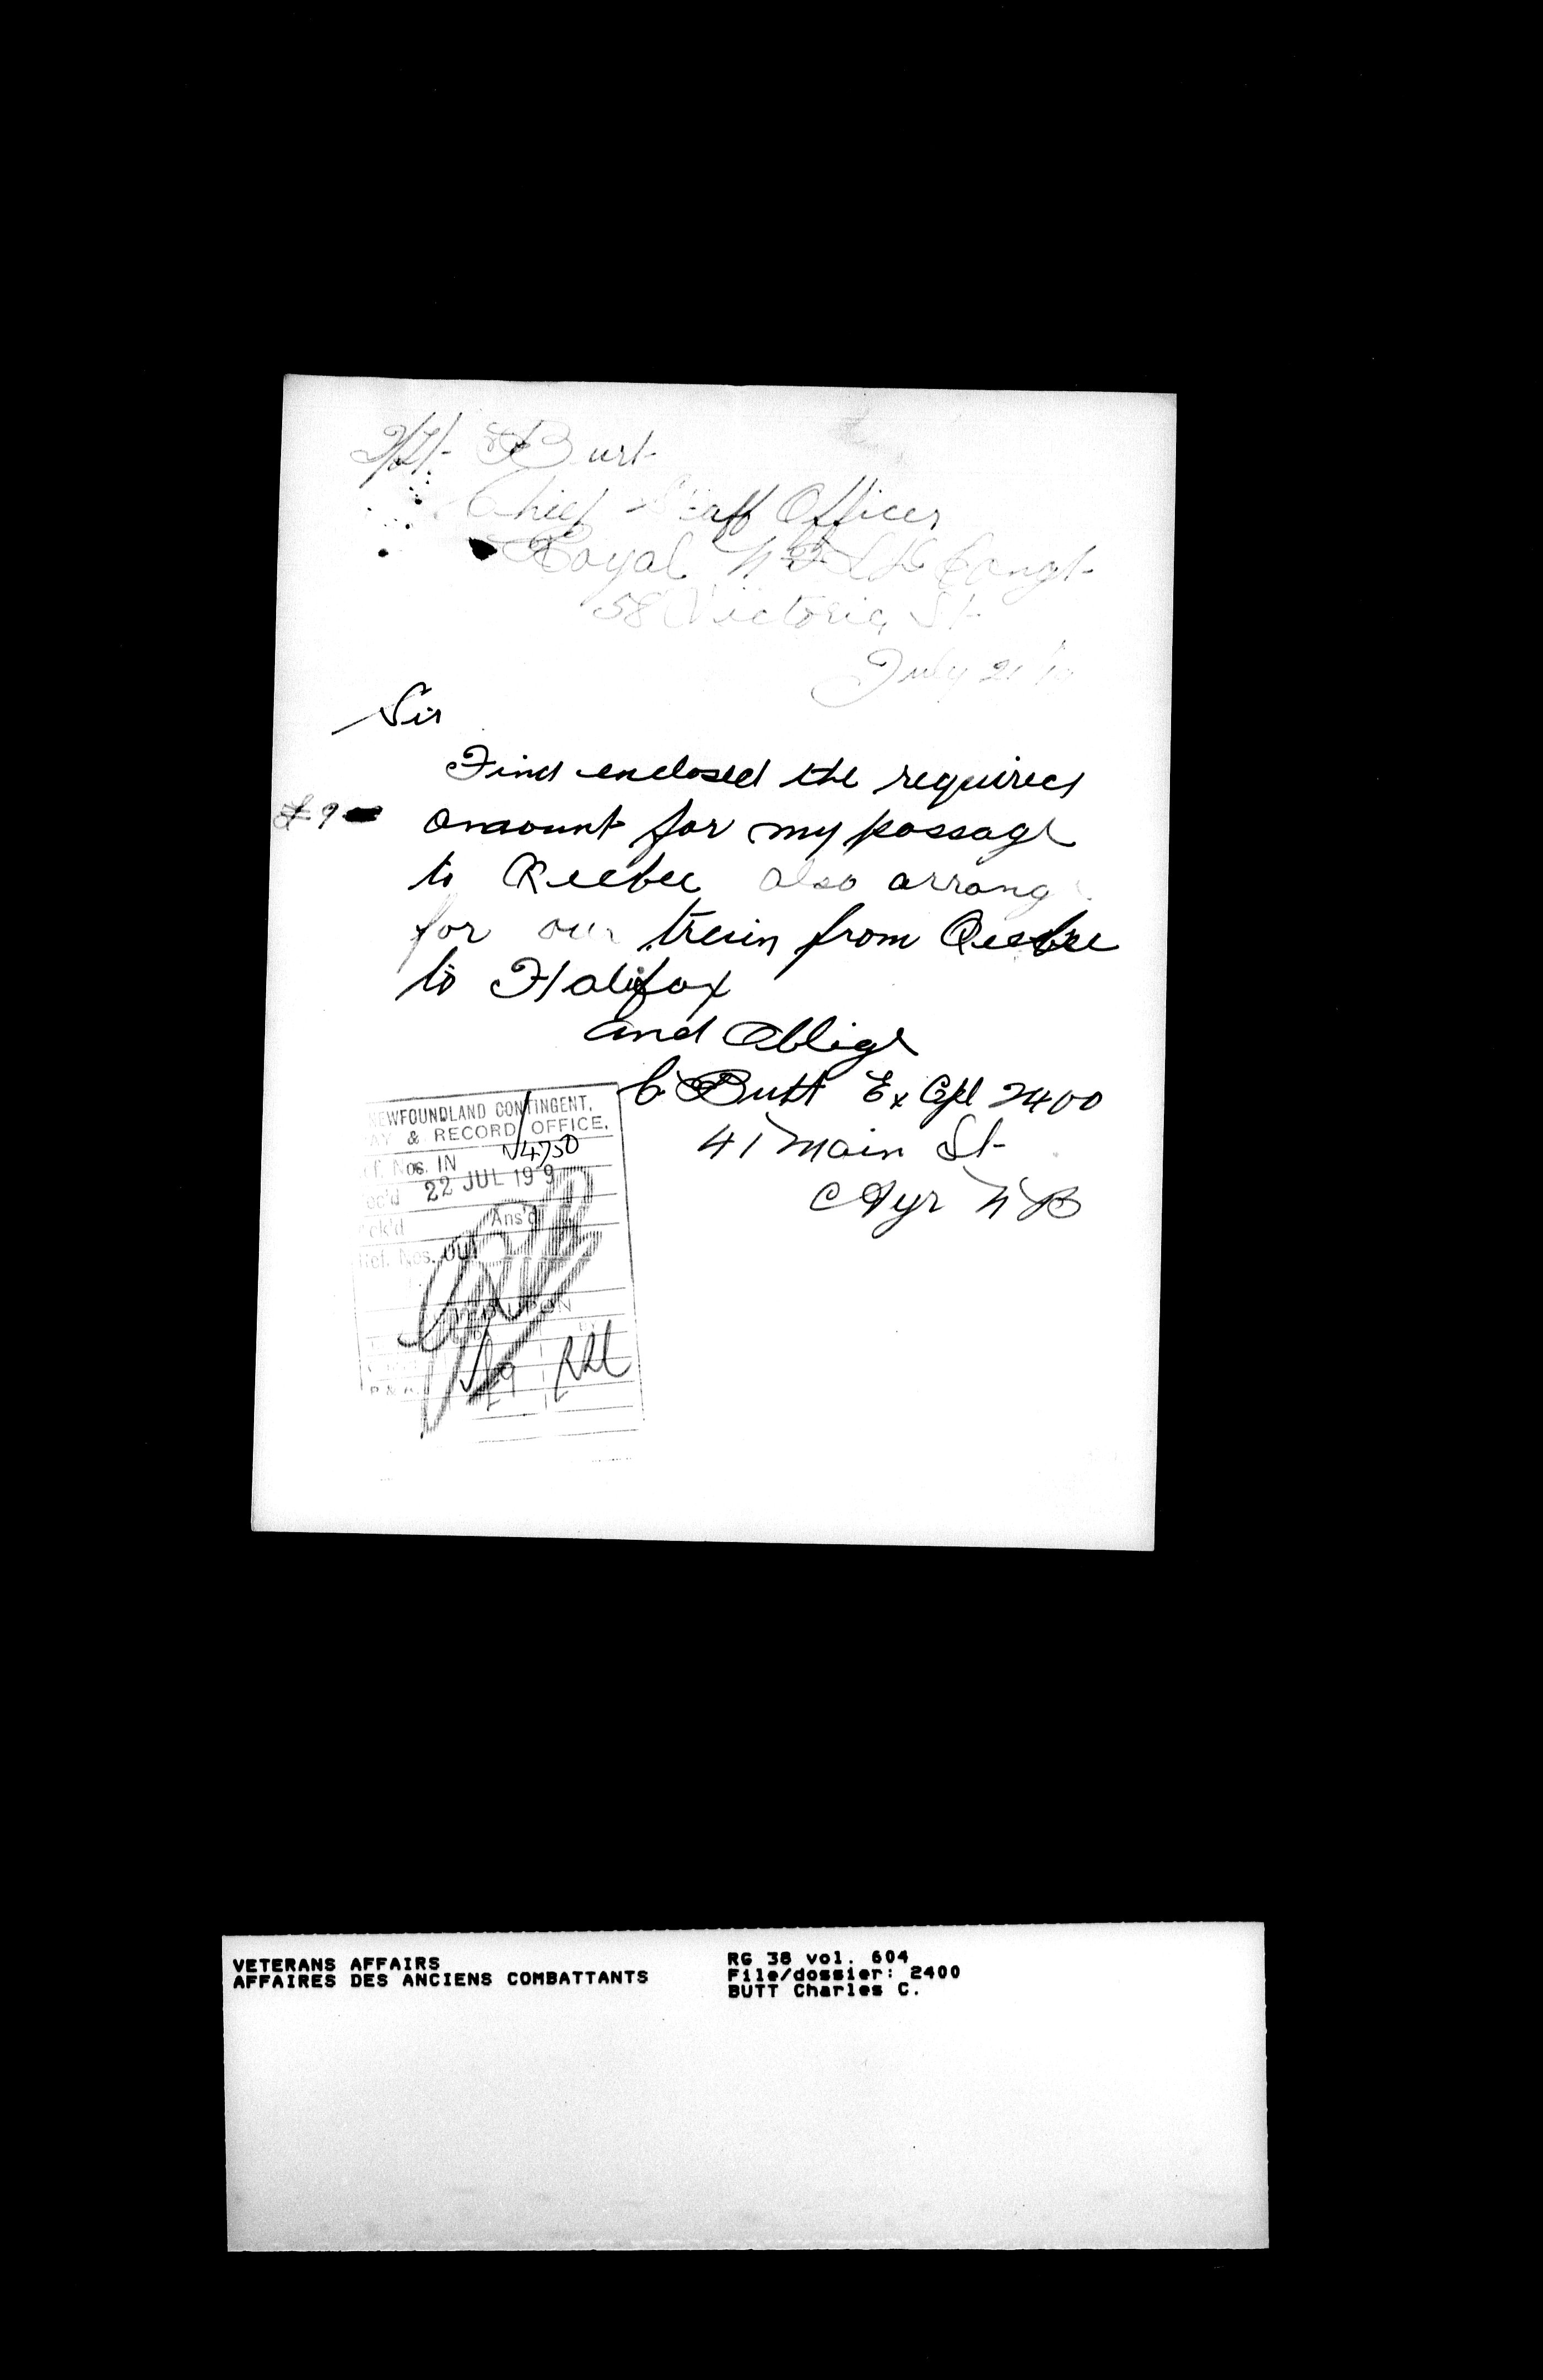 2/Lt Burt
Chief Staff Officer
Royal NFLD Congt
58 Victoria St
July 21/19
Sir
Find enclosed the required
£9 amount for my passage
to Qeebec also arrange
for our train from Qeebec
to Halifax
and Oblige
C Butt Ex Cpl 2400
41 Main St
Ayr NB
NEWFOUNDLAND CONTINGENT.
PAY & RECORD OFFICE.
Ref. Nos. IN 4750
Rec'd 22 JUL 19 9
Ack'd Ans'd
Ref. Nos. OUT
P & A.
VETERANS AFFAIRS
AFFAIRES DES ANCIENS COMBATTANTS
RG 38 vol. 604
File/dossier: 2400
BUTT Charles C.